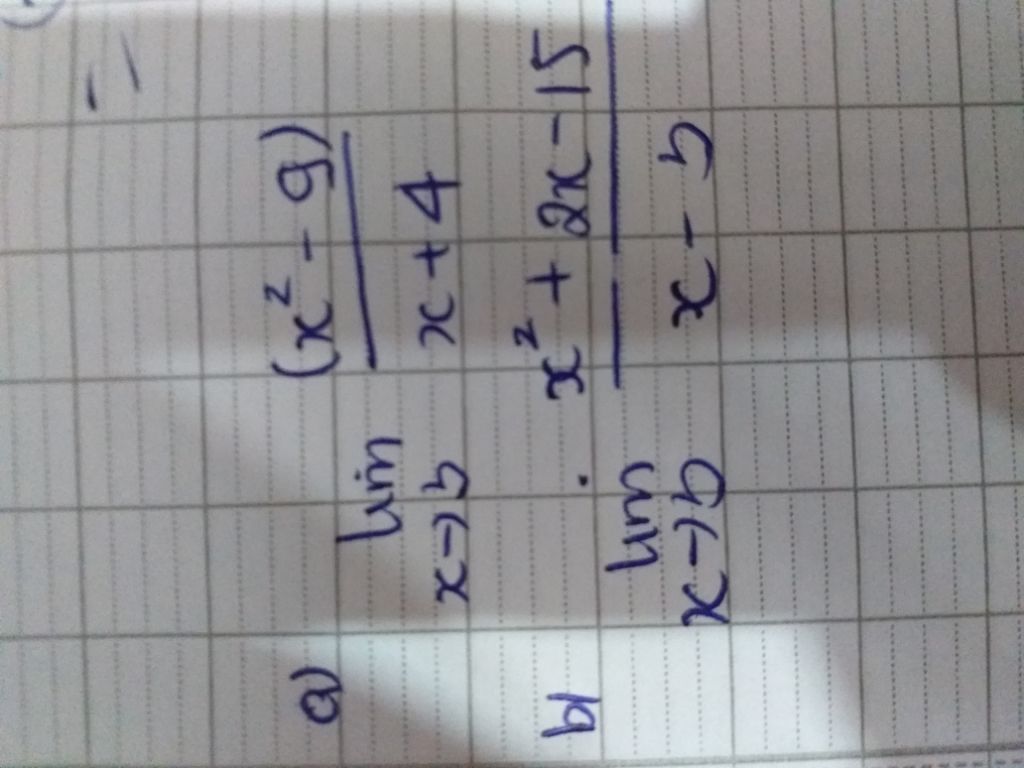 a) lim x→5 (x² - 9) / x + 4
b) lim x→5 x² + 2x - 15 / x - 5